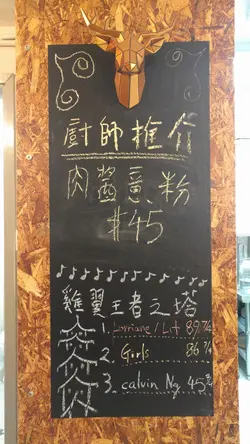 廚師推介
肉醬意粉
$45
雞翼王者之塔
1. Lorriane / Lit 89
2. Girls 86
3. Calvin Ng 45